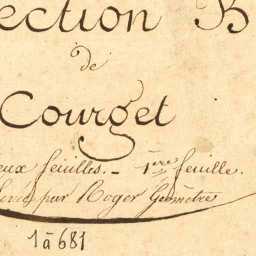 ection B
de
Courget
eux feuilles. _ 1ere feuille.
par Roger Géomètre
1 à 681